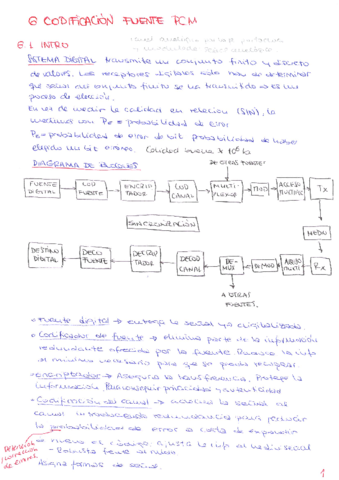 6 CODIFICACIÓN FUENTE PCM
6.1 INTRO
SISTEMA DIGITAL transmite un conjunto finito y discreto
de valores. Los receptores digitales solo han de determinar
que señal del conjunto finito se ha transmitido → es un
proceso de elección.
En vez de medir la calidad en relación (S/N), lo
medimos con Pe = probabilidad de error
Pe = probabilidad de error de bit. probabilidad de haber
elegido un bit erróneo.
DIAGRAMA DE BLOQUES
DE OTRAS FUENTES
FUENTE DIGITAL
COD FUENTE
ENCRIPTADOR
COD CANAL
MULTIPLEXOR
MOD
ACCESO MULTIPLE
Tx
SINCRONIZACIÓN
MEDIO
DESTINO DIGITAL
DECO FUENTE
DECRIPTADOR
DECOD CANAL
DEMUX
DEMOD
Rx
A OTRAS FUENTES.
• Fuente digital → entrega la señal ya digitalizada
• Codificador de fuente → elimina parte de la información
redundante ofrecida por la fuente. Reduce la info
al mínimo necesario para que se pueda recuperar.
• encriptador → Asegura la transferencia. Protege la
información. Para conseguir privacidad y autenticidad
• Codificación del canal → la señal al
canal introduciendo redundancia para reducir
la probabilidad de error a costa de
Detección y corrección de error
- Robusta frente al ruido.
Asigna formas de onda.
1